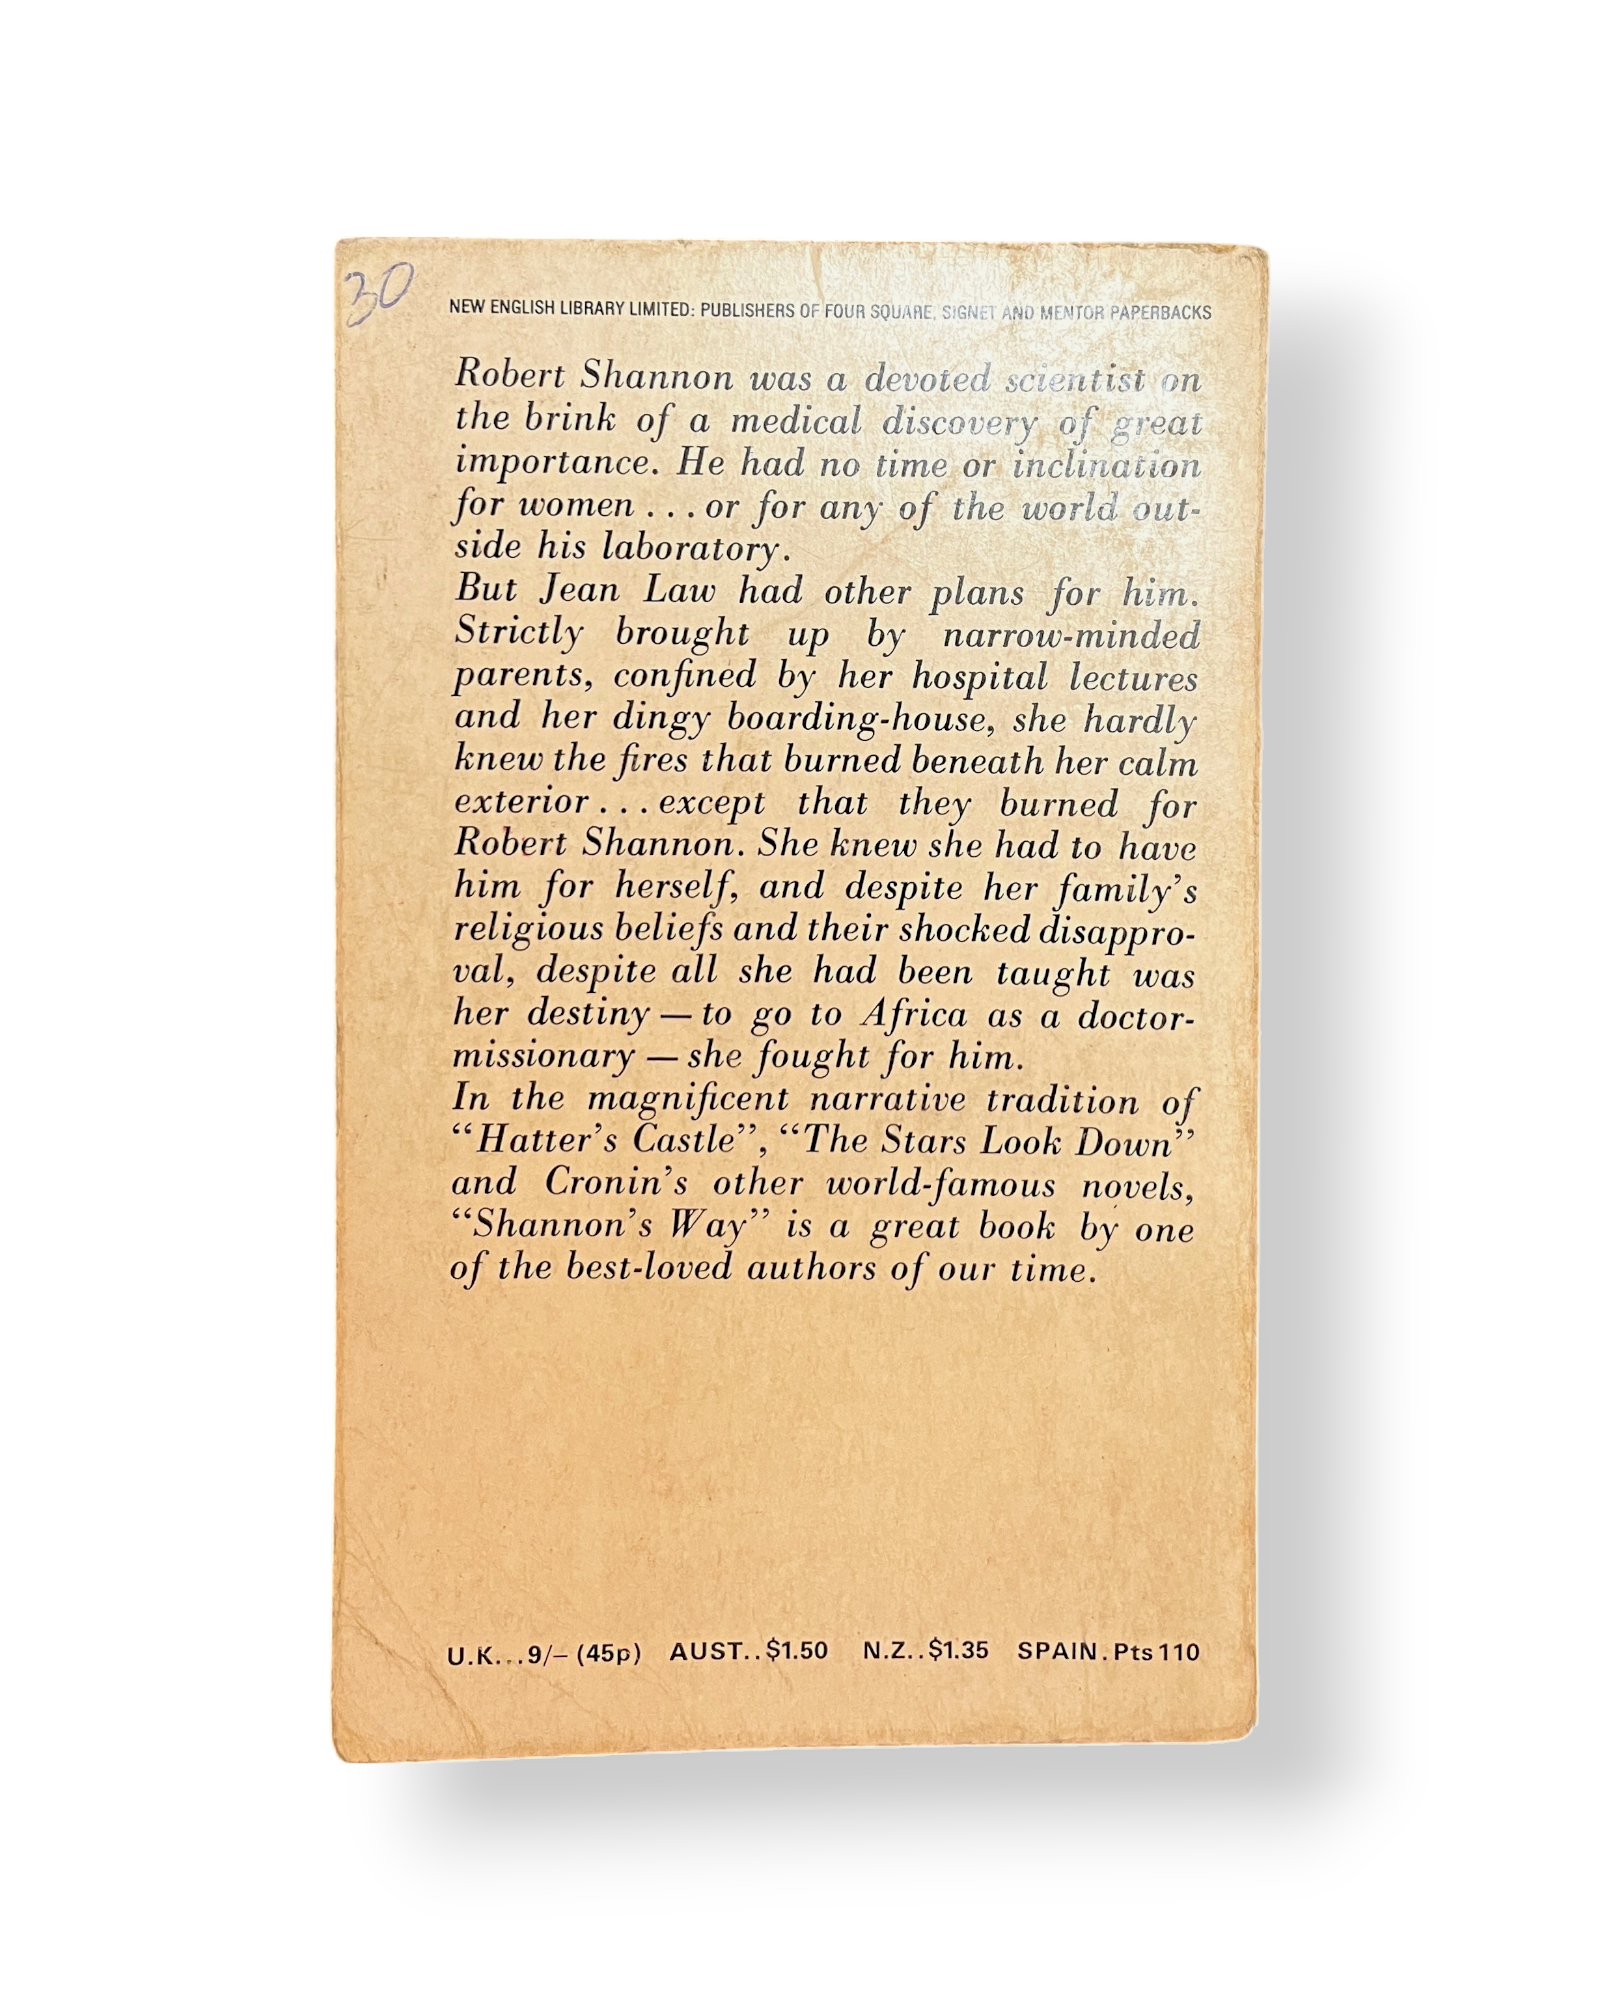 30
NEW ENGLISH LIBRARY LIMITED: PUBLISHERS OF FOUR SQUARE, SIGNET AND MENTOR PAPERBACKS
Robert Shannon was a devoted scientist on
the brink of a medical discovery of great
importance. He had no time or inclination
for women . . . or for any of the world out-
side his laboratory.
But Jean Law had other plans for him.
Strictly brought up by narrow-minded
parents, confined by her hospital lectures
and her dingy boarding-house, she hardly
knew the fires that burned beneath her calm
exterior . . . except that they burned for
Robert Shannon. She knew she had to have
him for herself, and despite her family’s
religious beliefs and their shocked disappro-
val, despite all she had been taught was
her destiny — to go to Africa as a doctor-
missionary — she fought for him.
In the magnificent narrative tradition of
“Hatter’s Castle”, “The Stars Look Down”
and Cronin’s other world-famous novels,
“Shannon’s Way” is a great book by one
of the best-loved authors of our time.
U.K...9/– (45p) AUST..$1.50 N.Z..$1.35 SPAIN.Pts 110